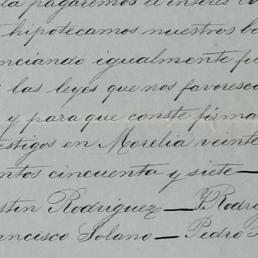 pagaremos el interes
hipotecamos nuestros
nciando igualmente
las leyes que nos favoresc
y para que conste firma
estigos en Morelia veinte
ntos cincuenta y siete—
stin Rodriguez — Rodri
ancisco Solano — Pedro